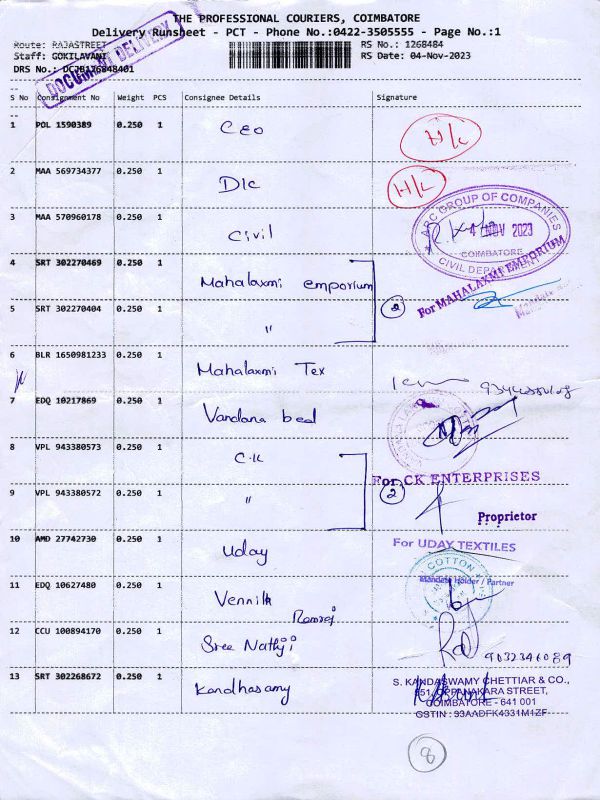 THE PROFESSIONAL COURIERS, COIMBATORE
Delivery Runsheet - PCT - Phone No.:0422-3505555 - Page No.:1
Route: RAJASTREET RS No.: 1268484
Staff: GOKILAVANI RS Date: 04-Nov-2023
DRS No.: DCJB126848401
DOCUMENT DELIVERY
S No Consignment No Weight PCS Consignee Details Signature
1 POL 1590389 0.250 1 CEO H/L
2 MAA 569734377 0.250 1 DIC H/L
3 MAA 570960178 0.250 1 Civil
ARC GROUP OF COMPANIES
4 NOV 2023
COIMBATORE
CIVIL DEPARTMENT
4 SRT 302270469 0.250 1 Mahalaxmi emporium
For MAHALAXMI EMPORIUM
5 SRT 302270404 0.250 1 " 2
6 BLR 1650981233 0.250 1 Mahalaxmi Tex
7 EDQ 10217869 0.250 1 Vandana bed
8 VPL 943380573 0.250 1 C.K
For CK ENTERPRISES
9 VPL 943380572 0.250 1 " 2
Proprietor
10 AMD 27742730 0.250 1 Uday
For UDAY TEXTILES
COTTON
Mandate Holder / Partner
11 EDQ 10627480 0.250 1 Vennila
Ramraj
12 CCU 100894170 0.250 1 Sree Nathji
9032346089
13 SRT 302268672 0.250 1 Kandhasamy
S. KANDASWAMY CHETTIAR & CO.,
351, OPPANAKARA STREET,
COIMBATORE - 641 001
GSTIN : 33AADFK4331M1ZF
8